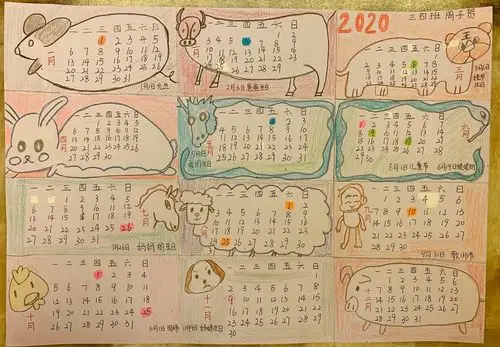 2020 三四班
一二三四五六日
1 2 3 4 5
6 7 8 9 10 11 12
13 14 15 16 17 18 19
20 21 22 23 24 25 26
27 28 29 30 31
一月
1月1日元旦
一二三四五六日
1 2
3 4 5 6 7 8 9
10 11 12 13 14 15 16
17 18 19 20 21 22 23
24 25 26 27 28 29
二月
一二三四五六日
1
2 3 4 5 6 7 8
9 10 11 12 13 14 15
16 17 18 19 20 21 22
23 24 25 26 27 28 29
30 31
王
三月
一二三四五六日
1 2 3 4 5
6 7 8 9 10 11 12
13 14 15 16 17 18 19
20 21 22 23 24 25 26
27 28 29 30
四月
一二三四五六日
1 2 3
4 5 6 7 8 9 10
11 12 13 14 15 16 17
18 19 20 21 22 23 24
25 26 27 28 29 30 31
一二三四五六日
1 2 3 4 5 6 7
8 9 10 11 12 13 14
15 16 17 18 19 20 21
22 23 24 25 26 27 28
29 30
六月
6月1日儿童节
一二三四五六日
1 2 3 4 5
6 7 8 9 10 11 12
13 14 15 16 17 18 19
20 21 22 23 24 25 26
27 28 29 30 31
七月
妈妈的生日
一二三四五六日
1 2
3 4 5 6 7 8 9
10 11 12 13 14 15 16
17 18 19 20 21 22 23
24 25 26 27 28 29 30
31
一二三四五六日
1 2 3 4 5 6
7 8 9 10 11 12 13
14 15 16 17 18 19 20
21 22 23 24 25 26 27
28 29 30
九月
9月10日 教师节
一二三四五六日
1 2 3 4
5 6 7 8 9 10 11
12 13 14 15 16 17 18
19 20 21 22 23 24 25
26 27 28 29 30 31
十月
一二三四五六日
1
2 3 4 5 6 7 8
9 10 11 12 13 14 15
16 17 18 19 20 21 22
23 24 25 26 27 28 29
30
十一月
一二三四五六日
1 2 3 4 5 6
7 8 9 10 11 12 13
14 15 16 17 18 19 20
21 22 23 24 25 26 27
28 29 30 31
十二月